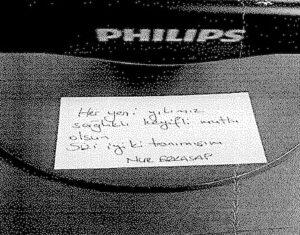 PHILIPS
Her yeni yılınız
sağlıklı keyifli mutlu
olsun
Sizi iyiki tanımışım
NUR ERKASAP